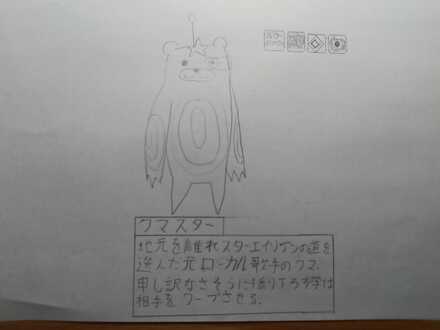 クマスター
地元を離れスターエイリアンの道を
選んだ元ローカル歌手のクマ。
申し訳なさそうに振り下ろす拳は
相手をワープさせる。